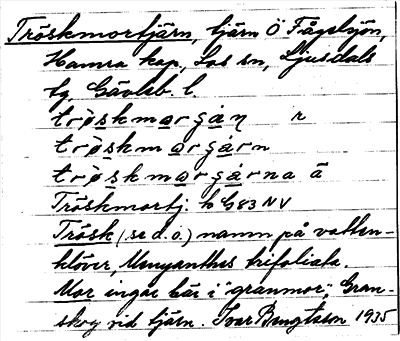 Tröskmortjärn, tjärn Ö Fågelsjön,
Hamra kap, Los sn, Ljusdals
tg, Gävleb. l.
trø̀skmo̱rgán r
trø̀skmo̱rgárn
trø̀skmo̱rgárna ä
Tröskmortj: k G83 NV
Trösk (se d.o.) namn på vatten-
klöver, Menyanthes trifoliata.
Mor ingår här i "granmor", Gran-
skog vid tjärn. Ivar Bengtsson 1935